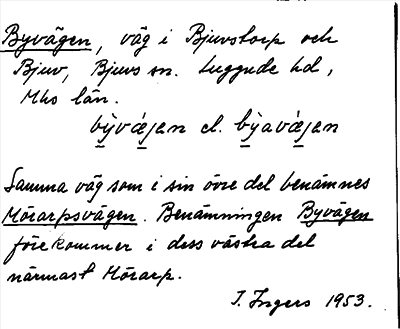 Byvägen, väg i Bjuvstorp och
Bjuv, Bjuvs sn. Luggude hd,
Mhs län.
bỳvǽjen el. bỳavǽjen
Samma väg som i sin övre del benämnes
Mörarpsvägen. Benämningen Byvägen
förekommer i dess västra del
närmast Mörarp.
I. Ingers 1953.